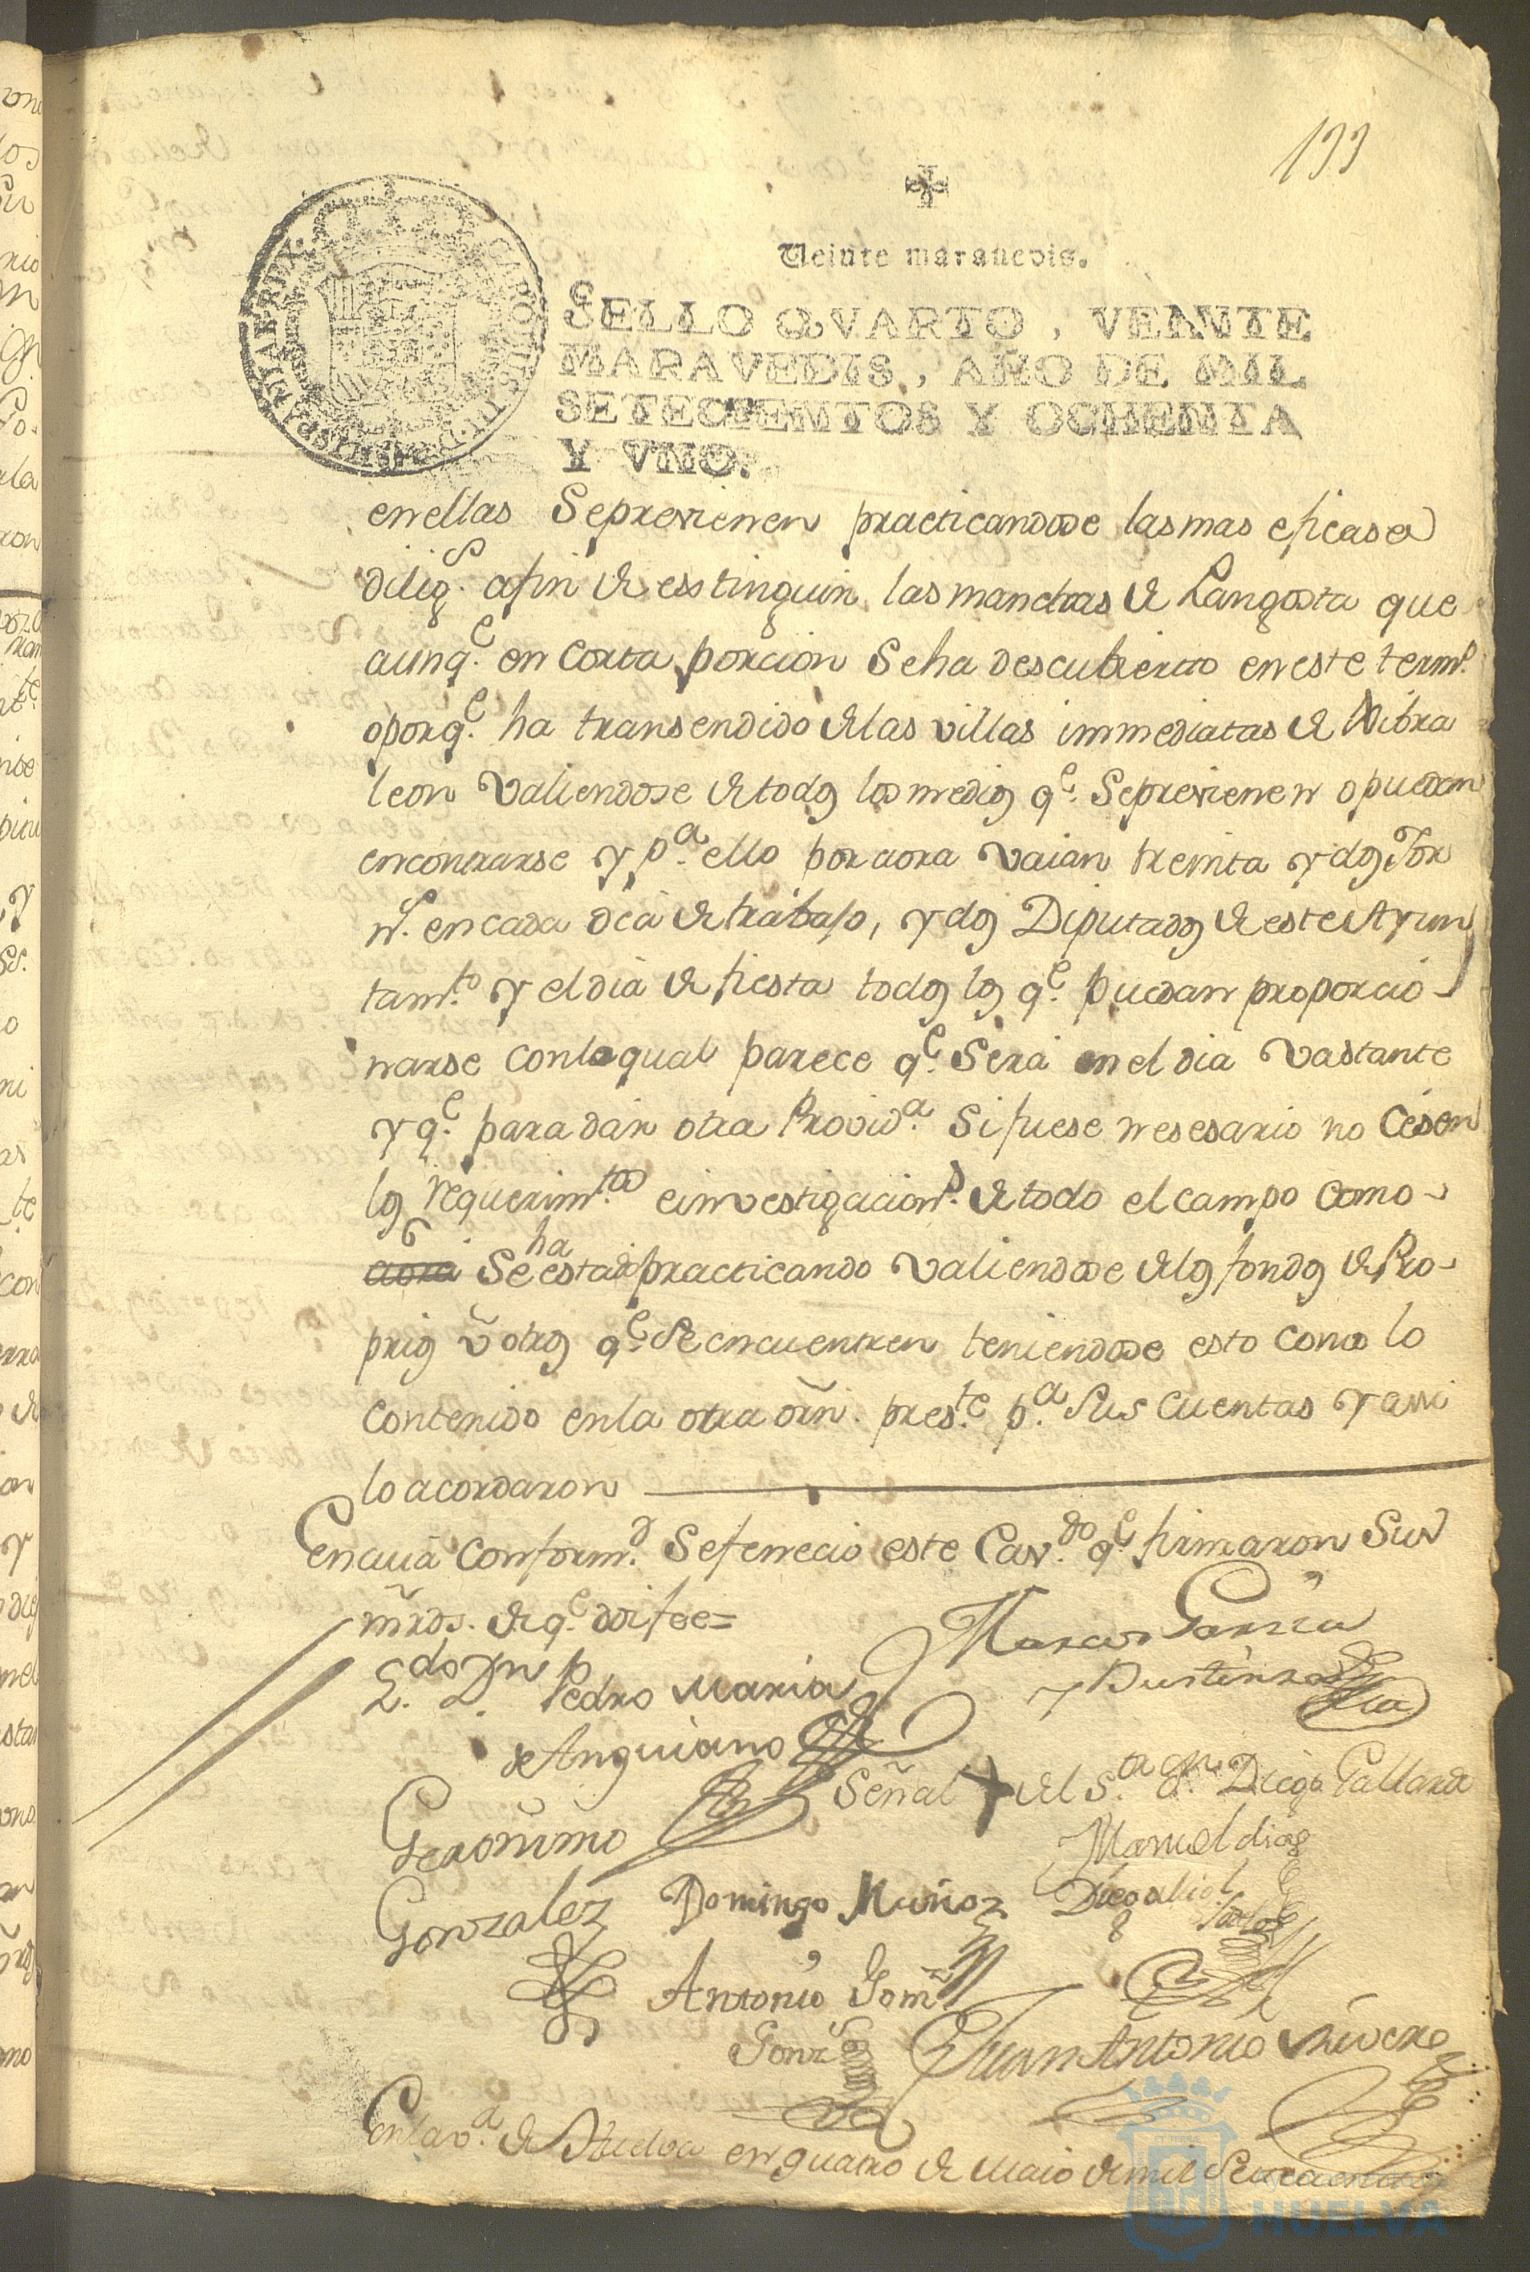 133
Veinte maravedis.
SELLO QVARTO, VEINTE
MARAVEDIS, AÑO DE MIL
SETECIENTOS Y OCHENTA
Y VNO.
en ellas Se previenen practicandose las mas eficases
dilig.s afin de esstinguir las manchas de Langosta que
aunq.e en Corta porcion Se ha descubierto en este term.o
o porq.e ha transendido de las villas immediatas de Gibra
leon Valiendose de todos los medios q.e Se previenen o puedan
encontrarse y p.a ello por aora Vaian treinta y dos Jor
n.s en cada dia de trabajo, y dos Diputados de este Ayun
tam.to y el dia de fiesta todos los q.e puedan proporcio
narse con lo qual parece q.e Será en el dia Vastante
y q.e para dar otra Provid.a Si fuese nesesario no Césen
los requerim.tos e investigacion.s de todo el campo Como
aora Se ha estado practicando Valiendose de los fondos de Pro-
prios ũ otros q.e Se encuentren teniendose esto Como lo
Contenido en la otra orn̄. pres.te p.a Sus Cuentas y assi
lo acordaron
En cuia Conform.d Se feneció este Cav.do q.e firmaron Sus
mrds. de q.e doi fee=
L.do Dn Pedro Maria
de Anguiano
Marcos Garcia
y Bustinza
Señal + del S.or dn. Diego Gallardo
Geronimo
Gonzalez
Manuel dias
Domingo Muñoz
Diego
Antonio Gom.z
Gonz
Juan Antonio Rivero
En la v.a de Huelva en quatro de Maio de mil Setecientos
HUELVA